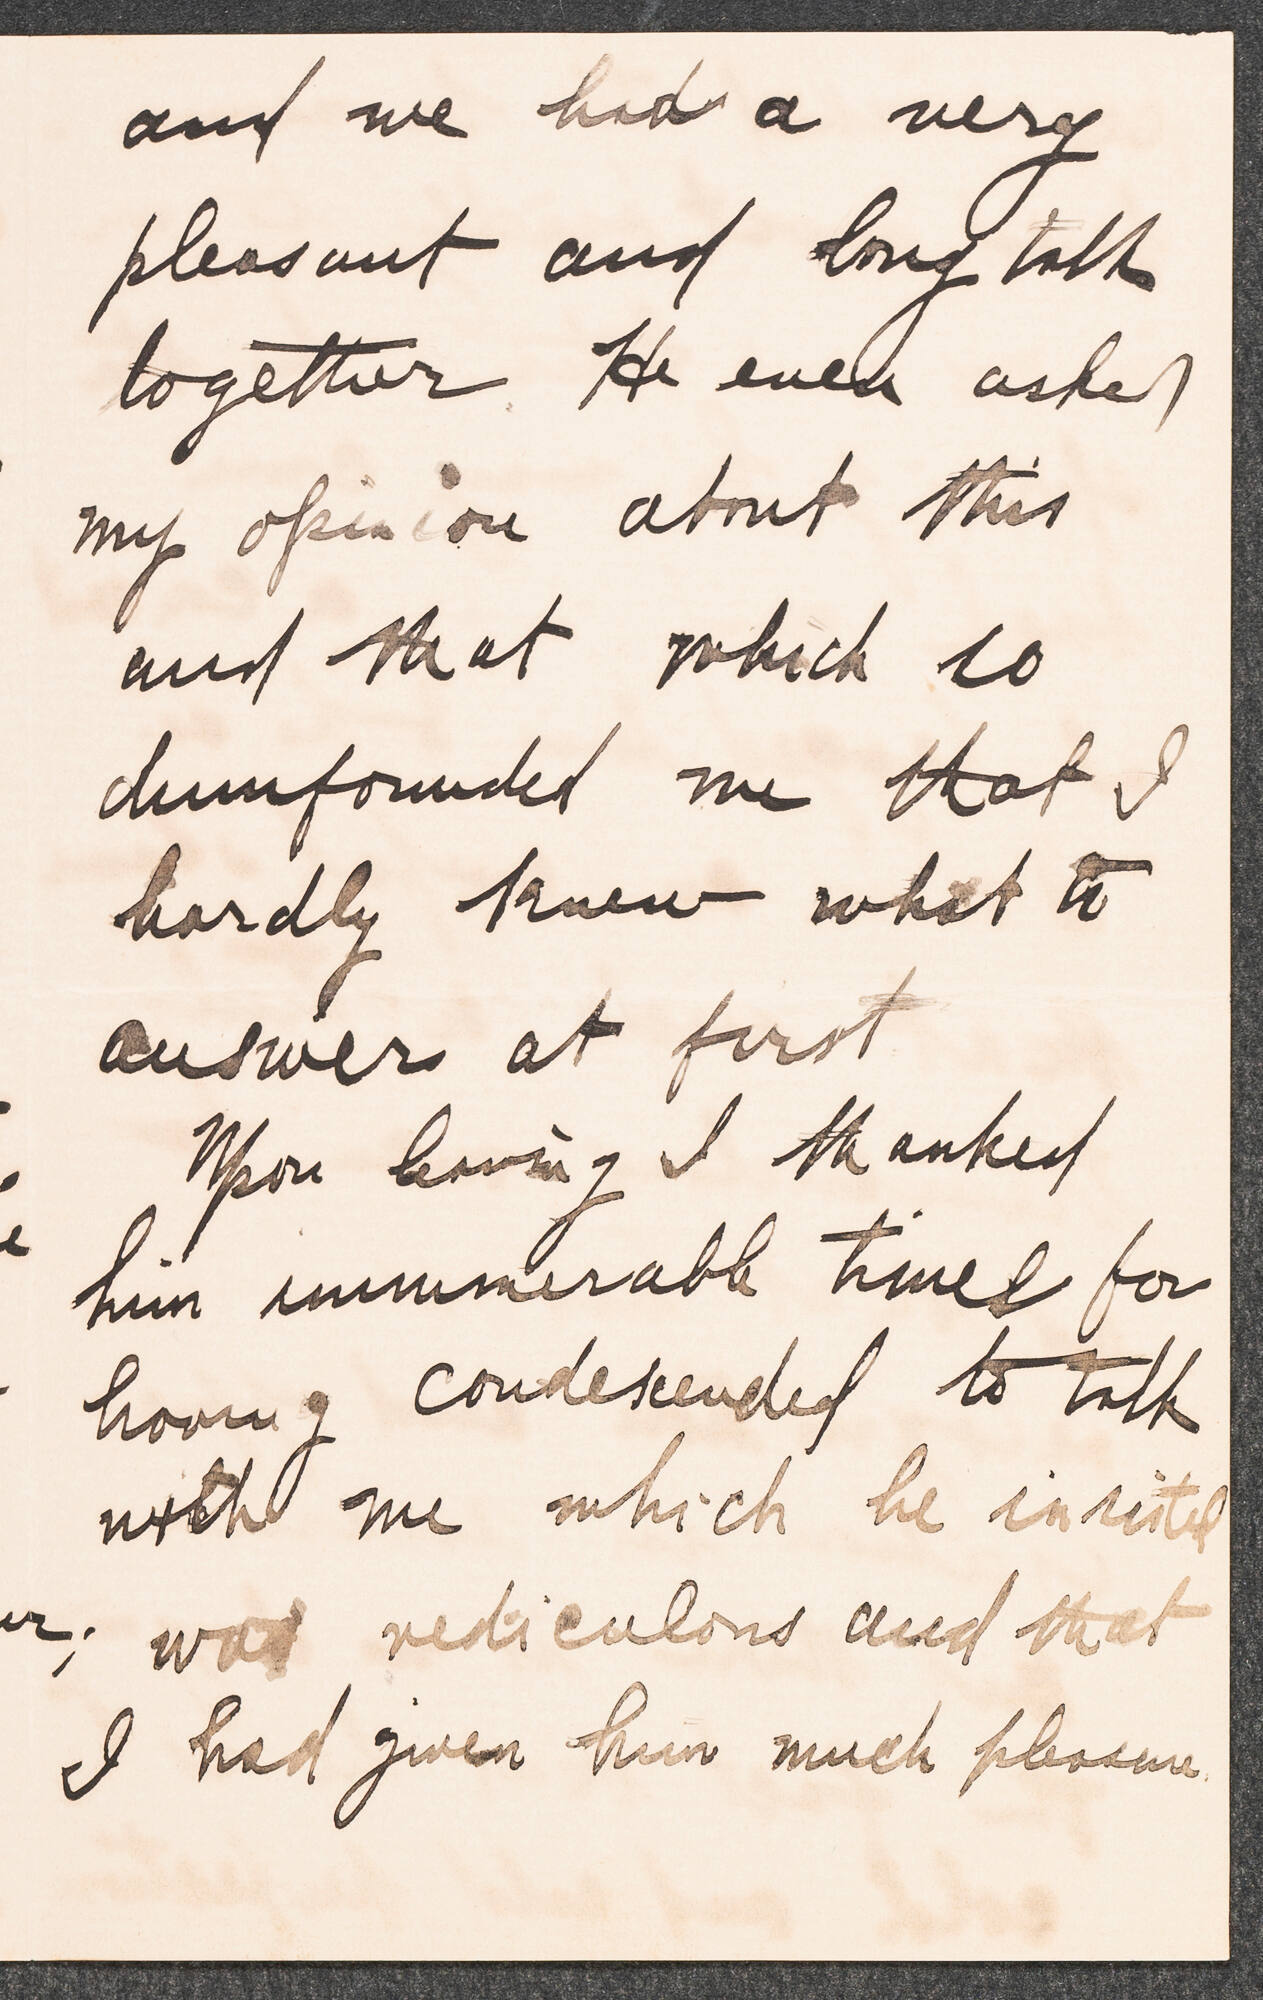 and we had a very
pleasant and long talk
together. He even asked
my opinion about this
and that which so
dumfounded me that I
hardly knew what to
answer at first
Upon leaving I thanked
him innumerable times for
having condescended to talk
with me which he insisted
was rediculous and that
I had given him much pleasure.